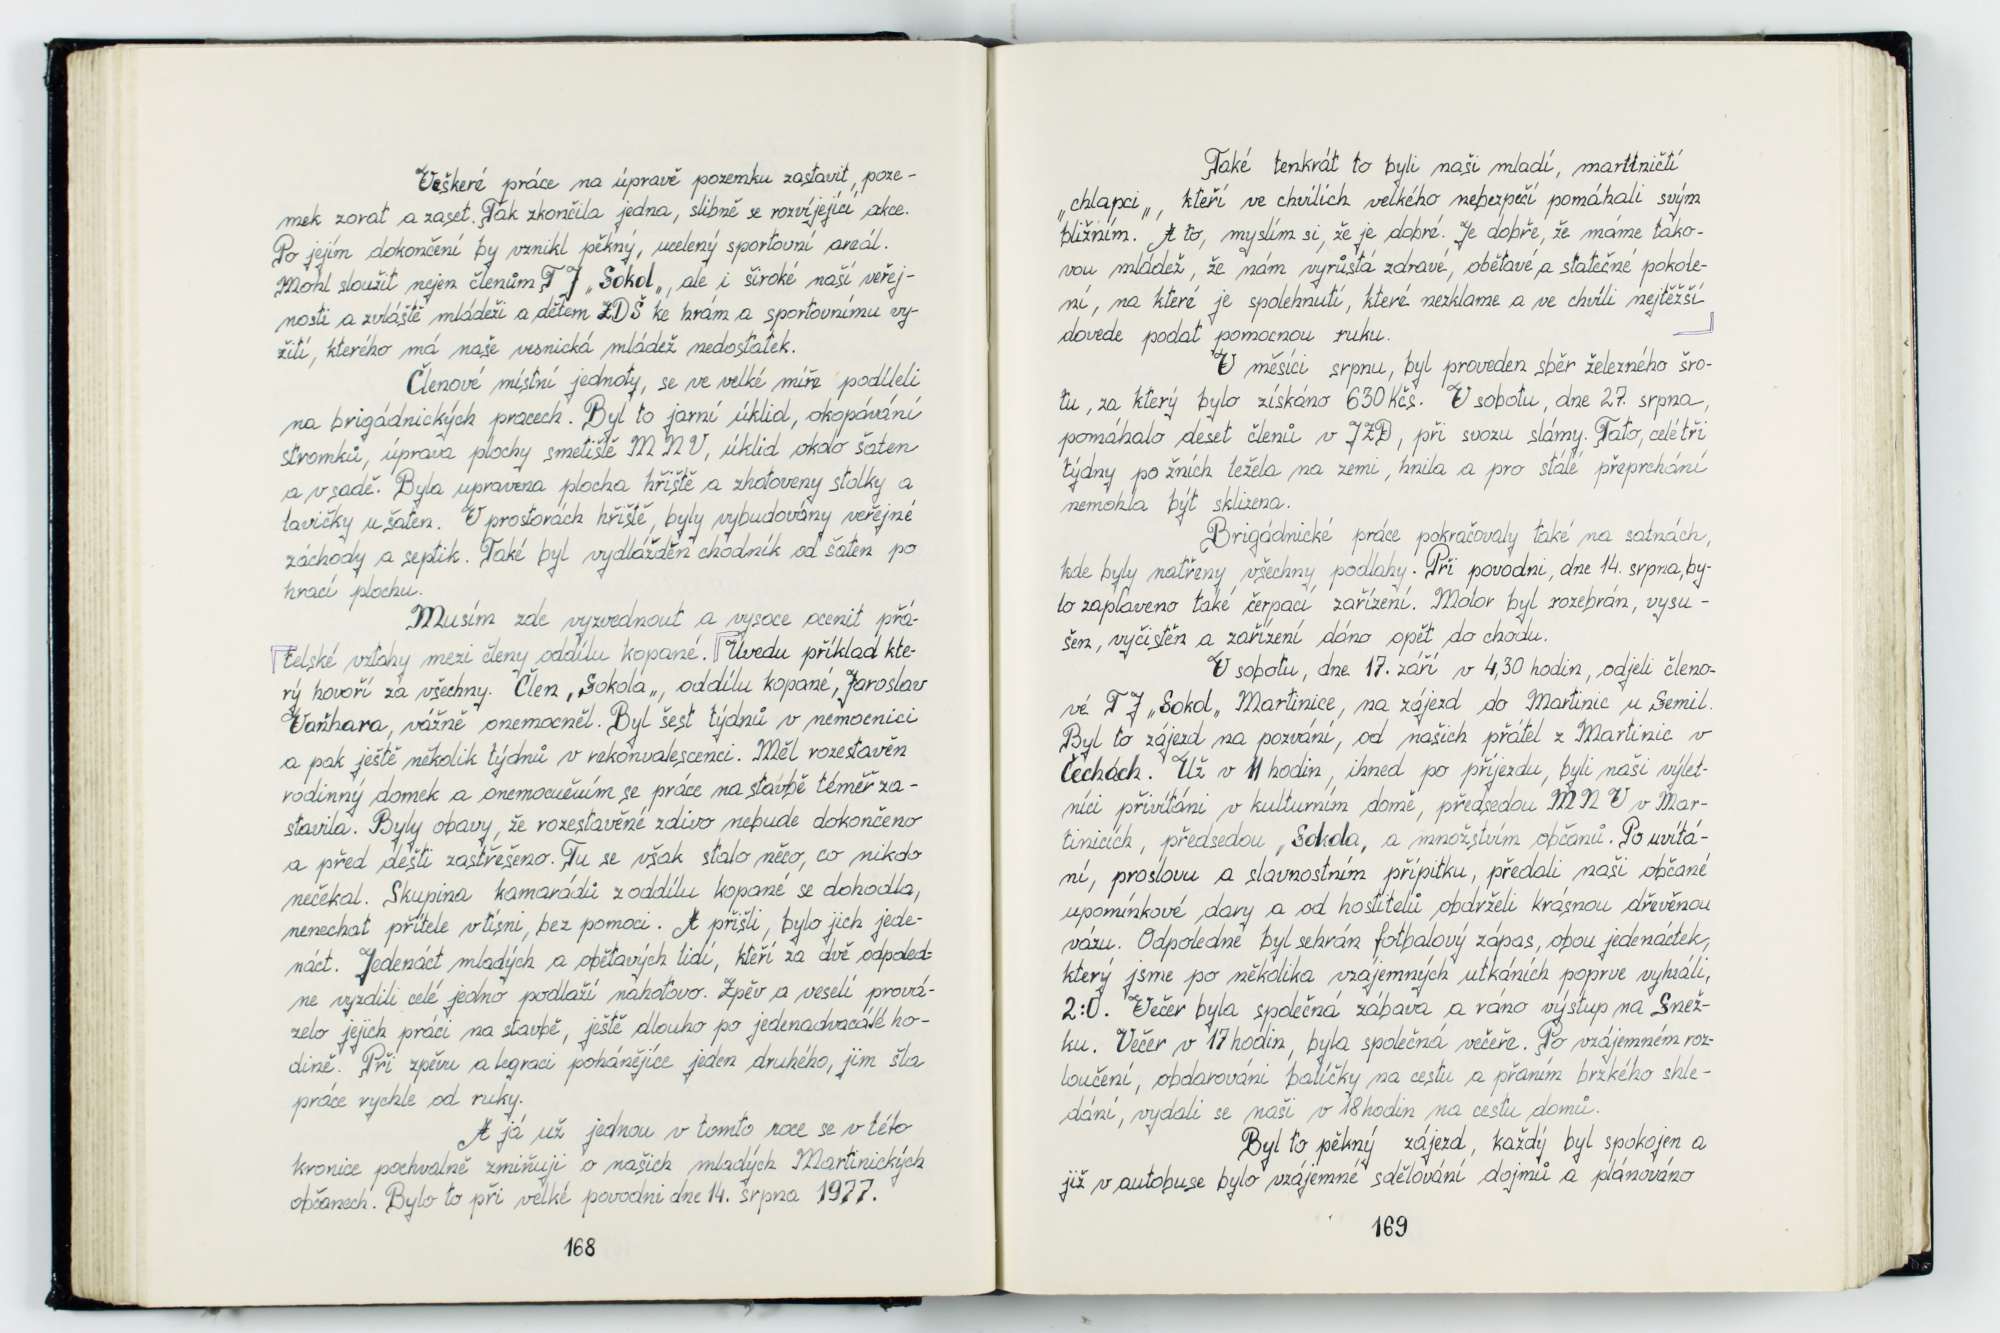 Veškeré práce na úpravě pozemku zastavit, poze-
mek zorat a zaset. Tak zkončila jedna, slibně se rozvíjející akce.
Po jejím dokončení by vznikl pěkný, ucelený sportovní areál.
Mohl sloužit nejen členům TJ „Sokol„, ale i široké naší veřej-
nosti a zvláště mládeži a dětem ZDŠ ke hrám a sportovnímu vy-
žití, kterého má naše vesnická mládež nedostatek.
Členové místní jednoty, se ve velké míře podíleli
na brigádnických pracech. Byl to jarní úklid, okopávání
stromků, úprava plochy smetiště MNV, úklid okolo šaten
a v sadě. Byla upravena plocha hřiště a zhotoveny stolky a
lavičky u šaten. V prostorách hřiště, byly vybudovány veřejné
záchody a septik. Také byl vydlážděn chodník od šaten po
hrací plochu.
Musím zde vyzvednout a vysoce ocenit přá-
telské vztahy mezi členy oddílu kopané. Uvedu příklad kte-
rý hovoří za všechny. Člen „Sokola„, oddílu kopané, Jaroslav
Vaňhara, vážně onemocněl. Byl šest týdnů v nemocnici
a pak ještě několik týdnů v rekonvalescenci. Měl rozestavěn
rodinný domek a onemocněním se práce na stavbě téměř za-
stavila. Byly obavy, že rozestavěné zdivo nebude dokončeno
a před dešti zastřešeno. Tu se však stalo něco, co nikdo
nečekal. Skupina kamarádů z oddílu kopané se dohodla,
nenechat přítele v tísni, bez pomoci. A přišli, bylo jich jede-
náct. Jedenáct mladých a obětavých lidí, kteří za dvě odpoled-
ne vyzdili celé jedno podlaží nahotovo. Zpěv a veselí prová-
zelo jejich práci na stavbě, ještě dlouho po jedenadvacáté ho-
dině. Při zpěvu a legraci pohánějíce jeden druhého, jim šla
práce rychle od ruky.
A já už jednou v tomto roce se v této
kronice pochvalně zmiňuji o našich mladých Martinických
občanech. Bylo to při velké povodni dne 14. srpna 1977.
168
Také tenkrát to byli naši mladí, martiničtí
„chlapci„, kteří ve chvílích velkého nebezpečí pomáhali svým
bližním. A to, myslím si, že je dobré. Je dobře, že máme tako-
vou mládež, že nám vyrůstá zdravé, obětavé a statečné pokole-
ní, na které je spolehnutí, které nezklame a ve chvíli nejtěžší
dovede podat pomocnou ruku.
V měsíci srpnu, byl proveden sběr železného šro-
tu, za který bylo získáno 630 Kčs. V sobotu, dne 27. srpna,
pomáhalo deset členů v JZD, při svozu slámy. Tato, celé tři
týdny po žních ležela na zemi, hnila a pro stálé přeprchání
nemohla být sklizena.
Brigádnické práce pokračovaly také na šatnách,
kde byly natřeny všechny podlahy. Při povodni, dne 14. srpna, by-
lo zaplaveno také čerpací zařízení. Motor byl rozebrán, vysu-
šen, vyčistěn a zařízení dáno opět do chodu.
V sobotu, dne 17. září v 4,30 hodin, odjeli členo-
vé TJ „Sokol„ Martinice, na zájezd do Martinic u Semil.
Byl to zájezd na pozvání, od našich přátel z Martinic v
Čechách. Už v 11 hodin, ihned po příjezdu, byli naši výlet-
níci přivítáni v kulturním domě, předsedou MNV v Mar-
tinicích, předsedou „Sokola„ a množstvím občanů. Po uvítá-
ní, proslovu a slavnostním přípitku, předali naši občané
upomínkové dary a od hostitelů obdrželi krásnou dřevěnou
vázu. Odpoledne byl sehrán fotbalový zápas, obou jedenáctek,
který jsme po několika vzájemných utkáních poprve vyhráli,
2:0. Večer byla společná zábava a ráno výstup na Sněž-
ku. Večer v 17 hodin, byla společná večeře. Po vzájemném roz-
loučení, obdarováni balíčky na cestu a přáním brzkého shle-
dání, vydali se naši v 18 hodin na cestu domů.
Byl to pěkný zájezd, každý byl spokojen a
již v autobuse bylo vzájemné sdělování dojmů a plánováno
169